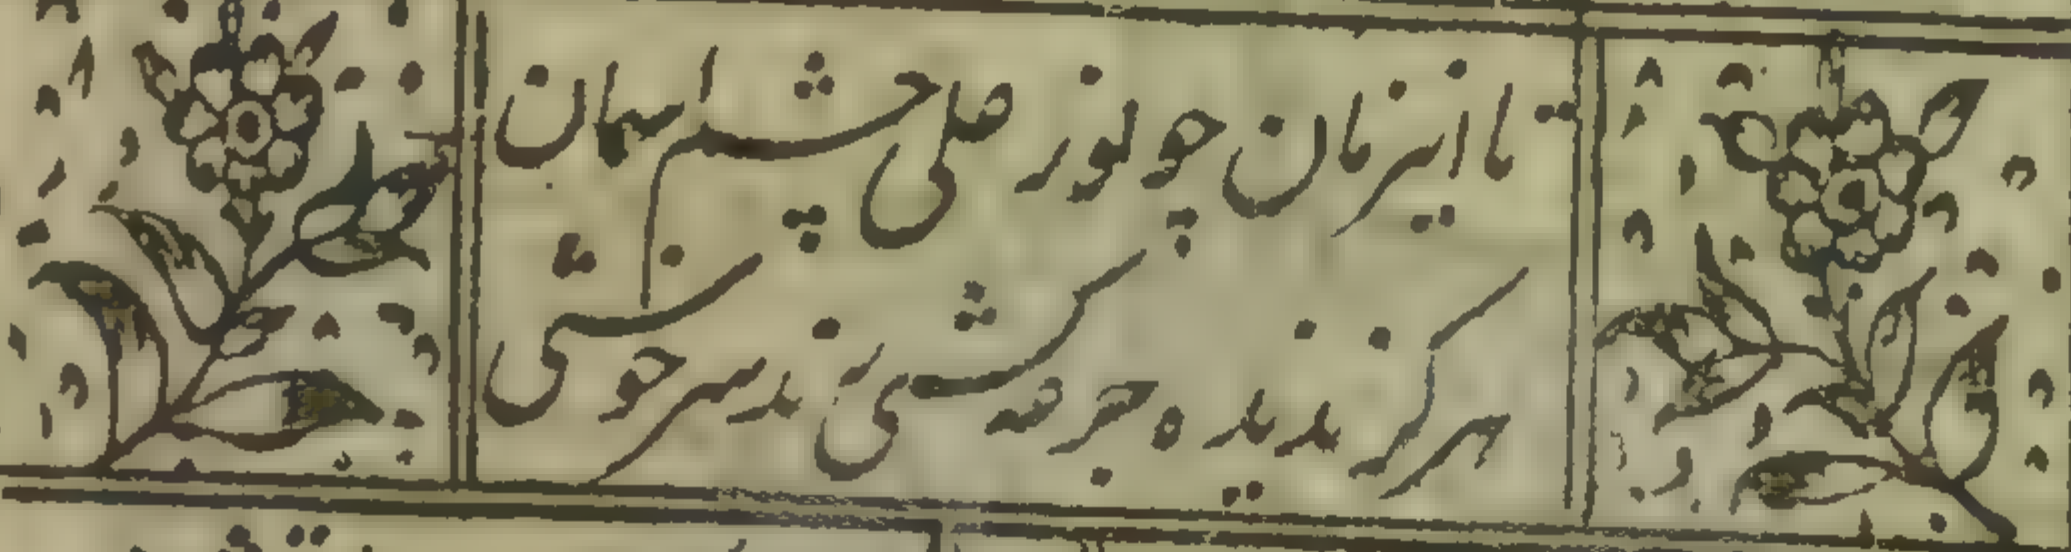 تا اینزمان چو نور علی چشم اسمان
هرکز ندیده جرعه کشی رند سرخوشی